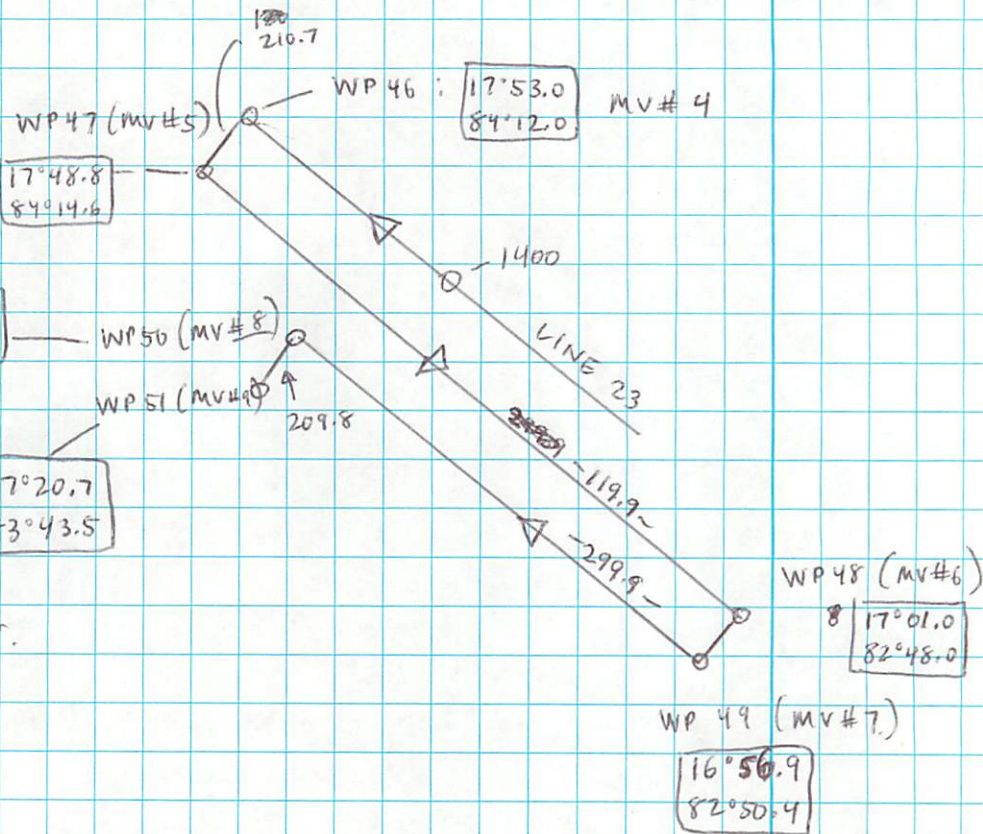 210.7
WP 46 : 17°53.0
84°12.0
MV# 4
WP 47 (MV#5)
17°48.8
84°14.6
1400
LINE 23
WP 50 (MV#8)
WP 51 (MV#9)
209.8
7°20.7
3°43.5
-119.9-
-299.9-
WP 48 (MV#6)
17°01.0
82°48.0
WP 49 (MV#7)
16°56.9
82°50.4